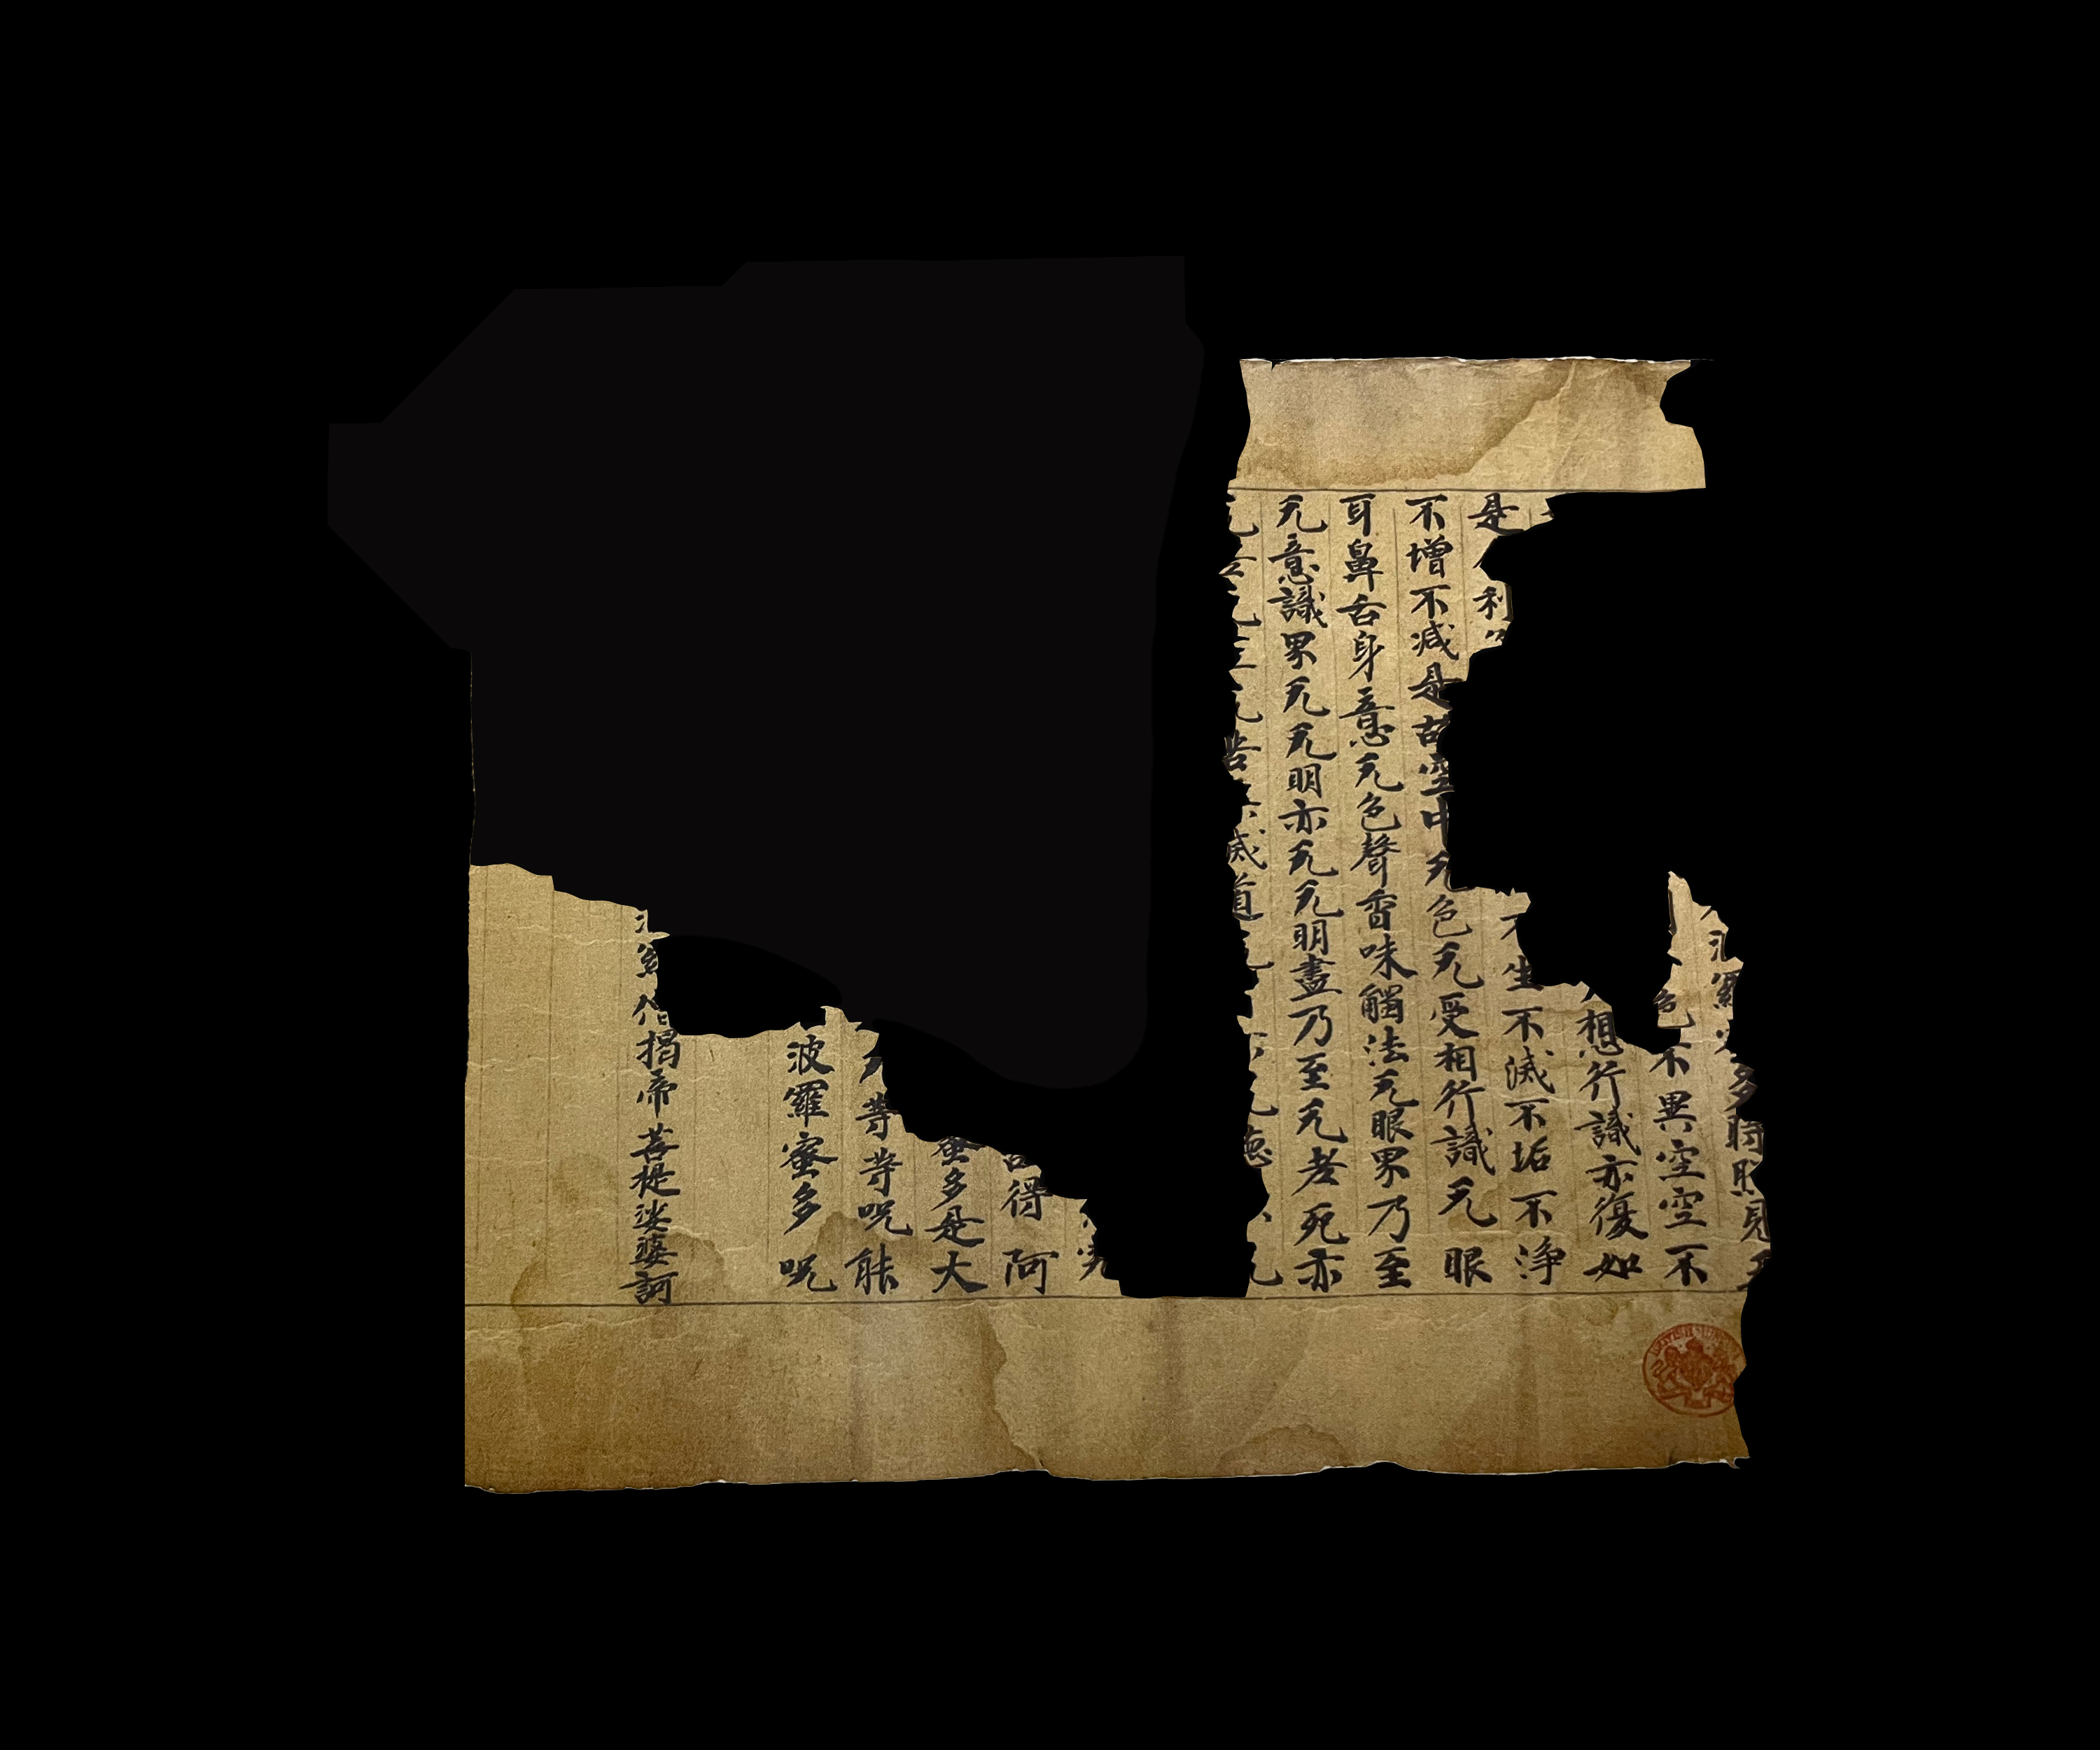 波羅多時照見
色不異空空不
想行識亦復如
是利不生不滅不垢不浄
不增不减是故空中无色无受相行識无眼
耳鼻舌身意无色聲香味觸法无眼界乃至
无意識界无无明亦无无明盡乃至无老死亦
无苦滅道
究
得阿
蜜多是大
等等呪能
波羅蜜多呪
僧揭帝菩提娑婆訶